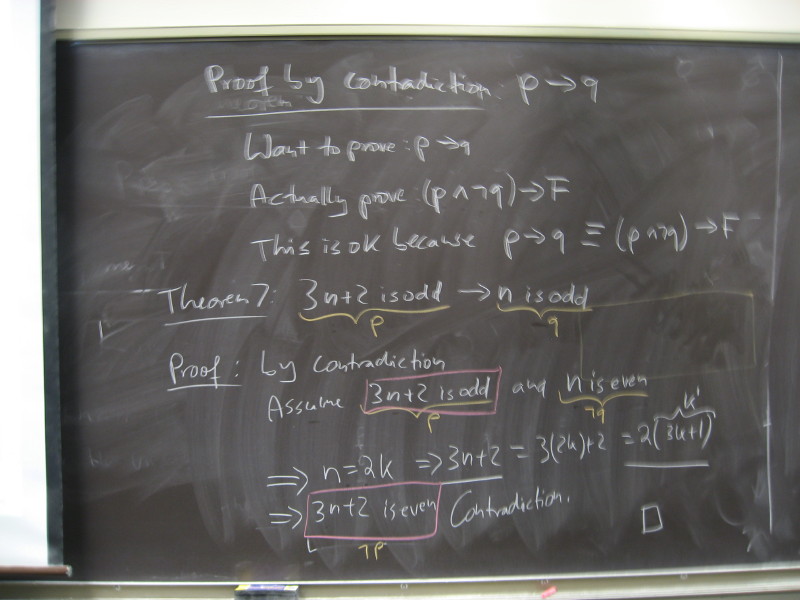 Proof by contradiction: p → q
Want to prove: p → q
Actually prove: (p ∧ ¬q) → F
This is ok because p → q ≡ (p ∧ ¬q) → F
Theorem 7: 3n+2 is odd → n is odd
p q
Proof: by contradiction
Assume 3n+2 is odd and n is even
p ¬q k'
⇒ n=2k ⇒ 3n+2 = 3(2k)+2 = 2(3k+1)
⇒ 3n+2 is even Contradiction. □
¬p